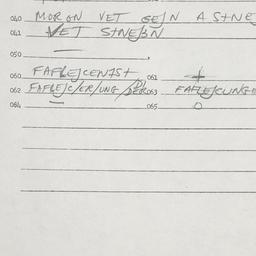 040 MORGN VET GEJN A STNE
041 VET STNEBN
050
060 FAFLEJCENTST 061 +
062 FAFLEJC/ER/UNG/ 063 FAFLEJCUNGE
064 — 065 O